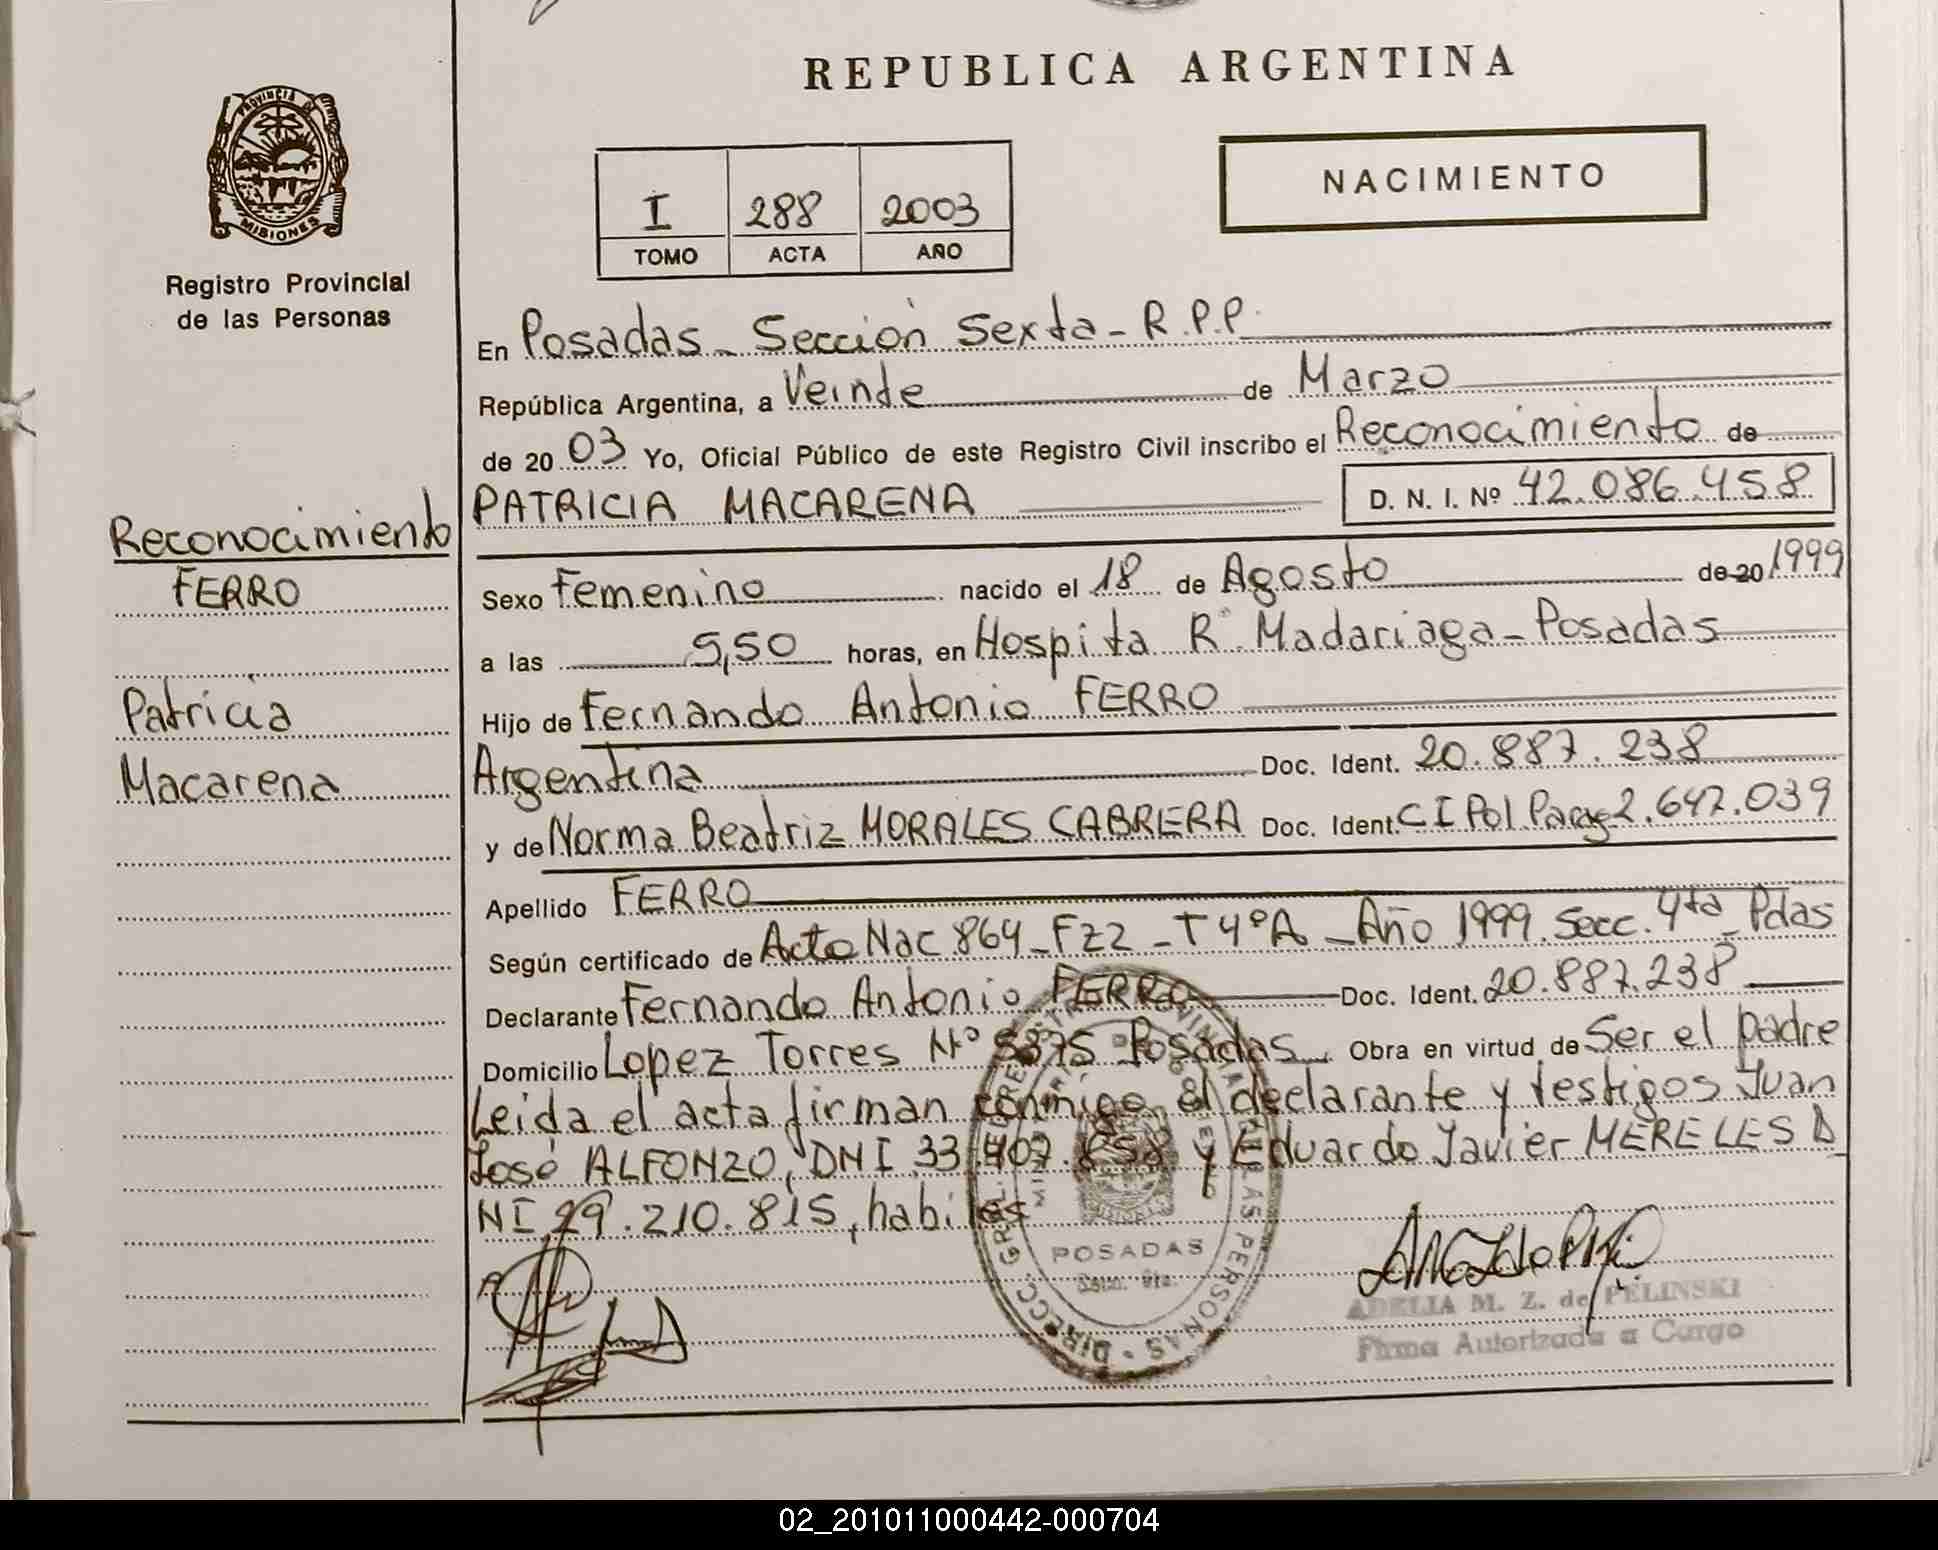 REPUBLICA ARGENTINA
PROVINCIA DE
MISIONES
Registro Provincial
de las Personas
I 288 2003
TOMO ACTA AÑO
NACIMIENTO
En Posadas - Sección Sexta - R.P.P.
República Argentina, a Veinte de Marzo
de 20 03 Yo, Oficial Público de este Registro Civil inscribo el Reconocimiento de
PATRICIA MACARENA D. N. I. Nº 42.086.458
Reconocimiento
FERRO
Patricia
Macarena
Sexo Femenino nacido el 18 de Agosto de 20 1999
a las 5,50 horas, en Hospita R. Madariaga - Posadas
Hijo de Fernando Antonio FERRO
Argentina Doc. Ident. 20.887.238
y de Norma Beatriz MORALES CABRERA Doc. Ident. C I Pol. Parg 2.647.039
Apellido FERRO
Según certificado de Acta Nac 864 - F22 - T 4º A - Año 1999. Secc. 4ta - Pdas
Declarante Fernando Antonio FERRO Doc. Ident. 20.887.238
Domicilio Lopez Torres Nº 5375 Posadas. Obra en virtud de Ser el padre
Leida el acta firman conmigo el declarante y testigos Juan
José ALFONZO, DNI 33.407.858 y Eduardo Javier MERELES D
NI 29.210.815, habiles
DIRECC. GRAL. REGISTRO PROVINCIAL DE LAS PERSONAS
POSADAS
Secc. 6ta.
ADELIA M. Z. de PELINSKI
Firma Autorizada a Cargo
02_201011000442-000704